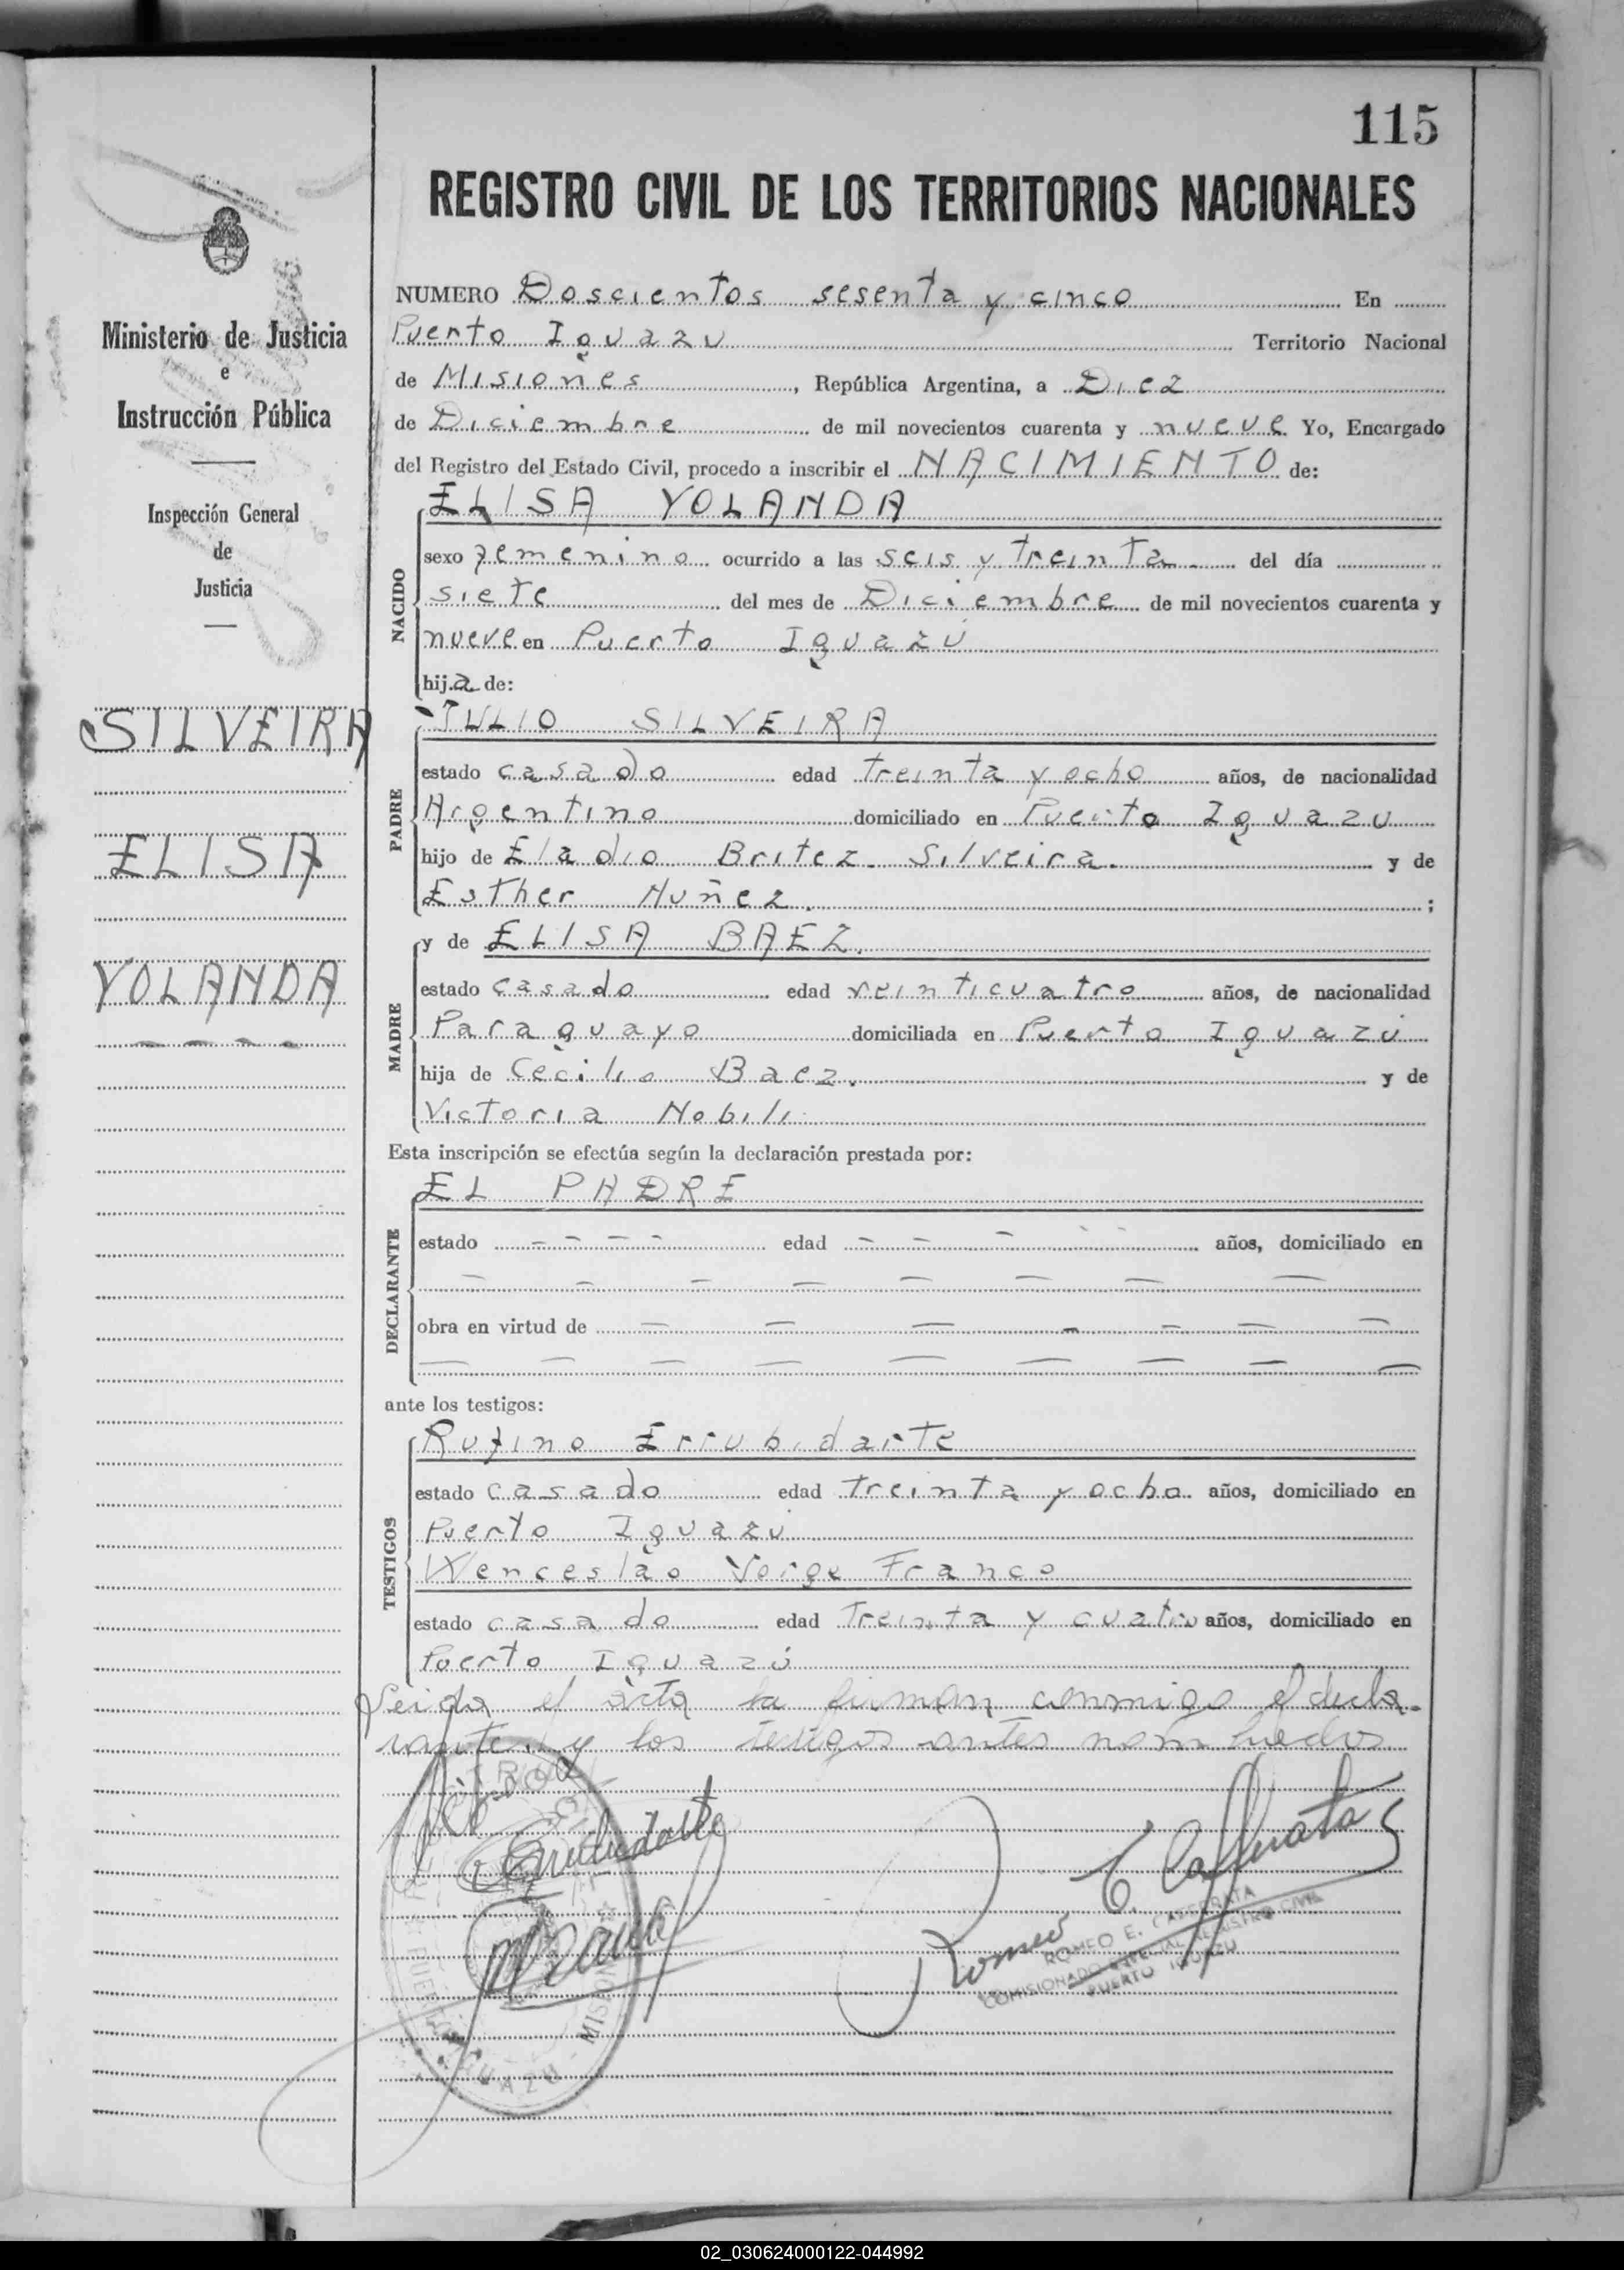 115
REGISTRO CIVIL DE LOS TERRITORIOS NACIONALES
Ministerio de Justicia
e
Instrucción Pública
Inspección General
de
Justicia
SILVEIRA
ELISA
YOLANDA
NUMERO Doscientos sesenta y cinco En
Puerto Iguazu Territorio Nacional
de Misiones, República Argentina, a Diez
de Diciembre de mil novecientos cuarenta y nueve Yo, Encargado
del Registro del Estado Civil, procedo a inscribir el NACIMIENTO de:
NACIDO
ELISA YOLANDA
sexo femenino ocurrido a las seis y treinta del día
siete del mes de Diciembre de mil novecientos cuarenta y
nueve en Puerto Iguazú
hija de:
PADRE
JULIO SILVEIRA
estado casado edad treinta y ocho años, de nacionalidad
Argentino domiciliado en Puerto Iguazu
hijo de Eladio Britez Silveira. y de
Esther Nuñez. ;
MADRE
y de ELISA BAEZ.
estado casado edad veinticuatro años, de nacionalidad
Paraguayo domiciliada en Puerto Iguazú
hija de Cecilio Baez. y de
Victoria Nobili
Esta inscripción se efectúa según la declaración prestada por:
DECLARANTE
EL PADRE
estado - - - - edad - - - - años, domiciliado en
obra en virtud de - - - - - - -
ante los testigos:
TESTIGOS
Rufino Errubidarte
estado casado edad treinta y ocho años, domiciliado en
Puerto Iguazú
Wenceslao Jorge Franco
estado casado edad treinta y cuatro años, domiciliado en
Puerto Iguazú
Leida el acta la firman conmigo el decla-
rante y los testigos antes nombrados
Romeo E. Cafferata
ROMEO E. CAFFERATA
COMISIONADO ESPECIAL REGISTRO CIVIL
PUERTO IGUAZU
PUERTO IGUAZU - MISIONES
02_030624000122-044992